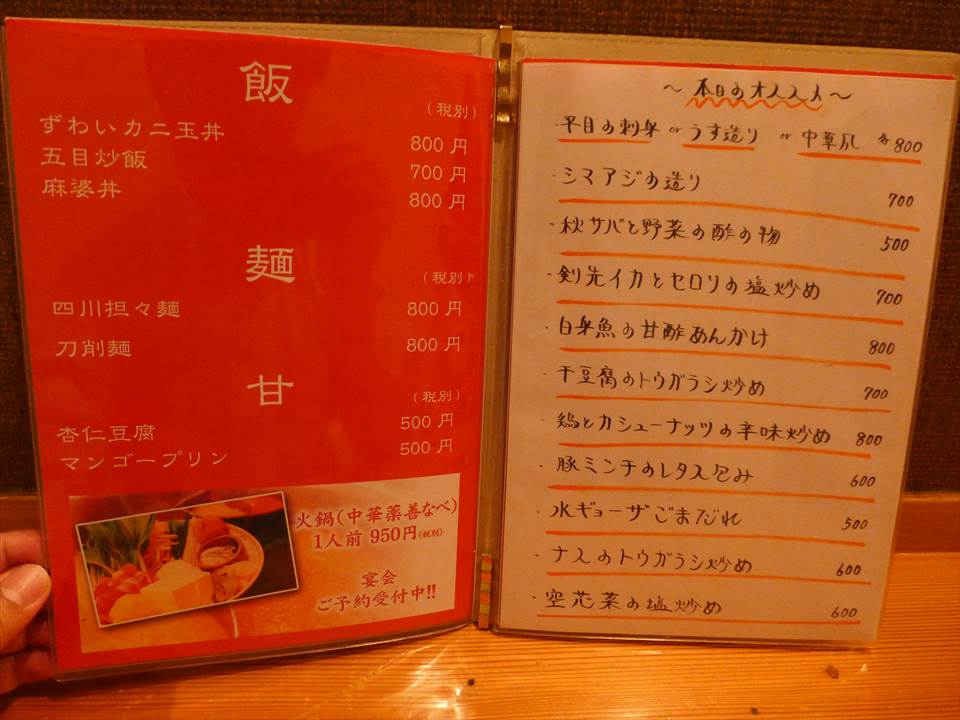 飯
(税別)
ずわいカニ玉丼 800 円
五目炒飯 700 円
麻婆丼 800 円
麺
(税別)
四川担々麺 800 円
刀削麺 800 円
甘
(税別)
杏仁豆腐 500 円
マンゴープリン 500 円
火鍋(中華薬善なべ)
1人前 950円(税別)
宴会
ご予約受付中!!
～本日のオススメ～
・平目の刺身 or うす造り or 中華風 各800
・シマアジの造り 700
・秋サバと野菜の酢の物 500
・剣先イカとセロリの塩炒め 700
・白身魚の甘酢あんかけ 800
・干豆腐のトウガラシ炒め 700
・鶏とカシューナッツの辛味炒め 800
・豚ミンチのレタス包み 600
・水ギョーザごまだれ 500
・ナスのトウガラシ炒め 600
・空芯菜の塩炒め 600